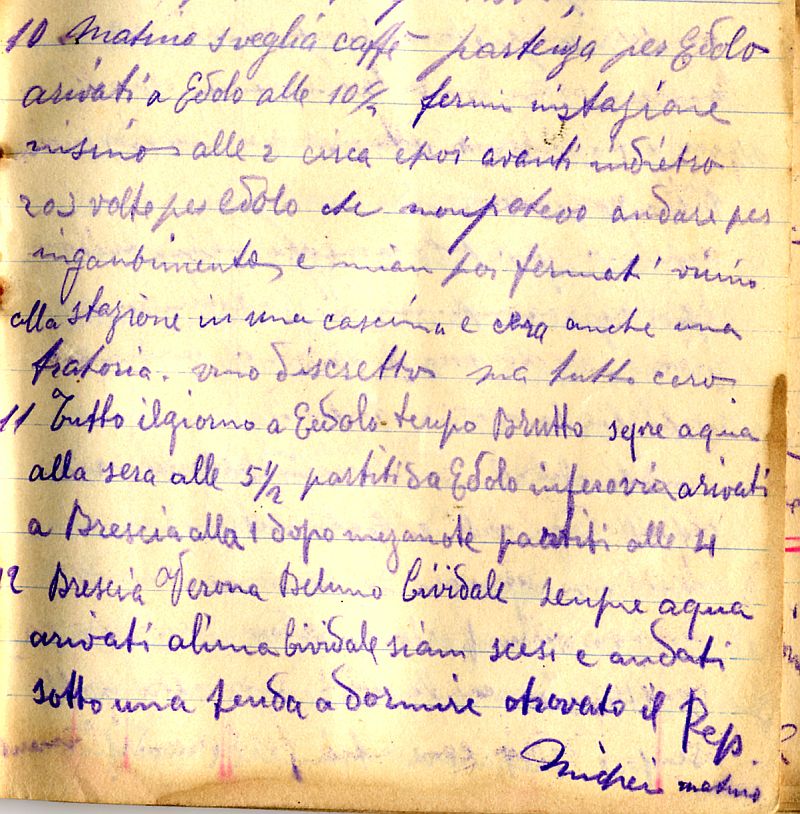 10 Matino sveglia caffè partenza per Edolo
arivati a Edolo alle 10½ fermi instazione
insino alle 2 circa epoi avanti indietro
2 o 3 volte per Edolo che nonpotevo andare per
inganbimento e poi fermati vicino
alla stazione in una cascina e cera anche una
tratoria. vino discretto ma tutto caro
11 Tutto ilgiorno a Eedolo tenpo Brutto senpre aqua
alla sera alle 5½ partiti da Edolo inferovia arivati
a Brescia alla 1 dopo mezanote partiti alle 4
12 Brescia Verona Beluno Cividale senpre aqua
arivati al'una Cividale siam scesi e andati
sotto una tenda a dormire otrovato il Pep.
matino